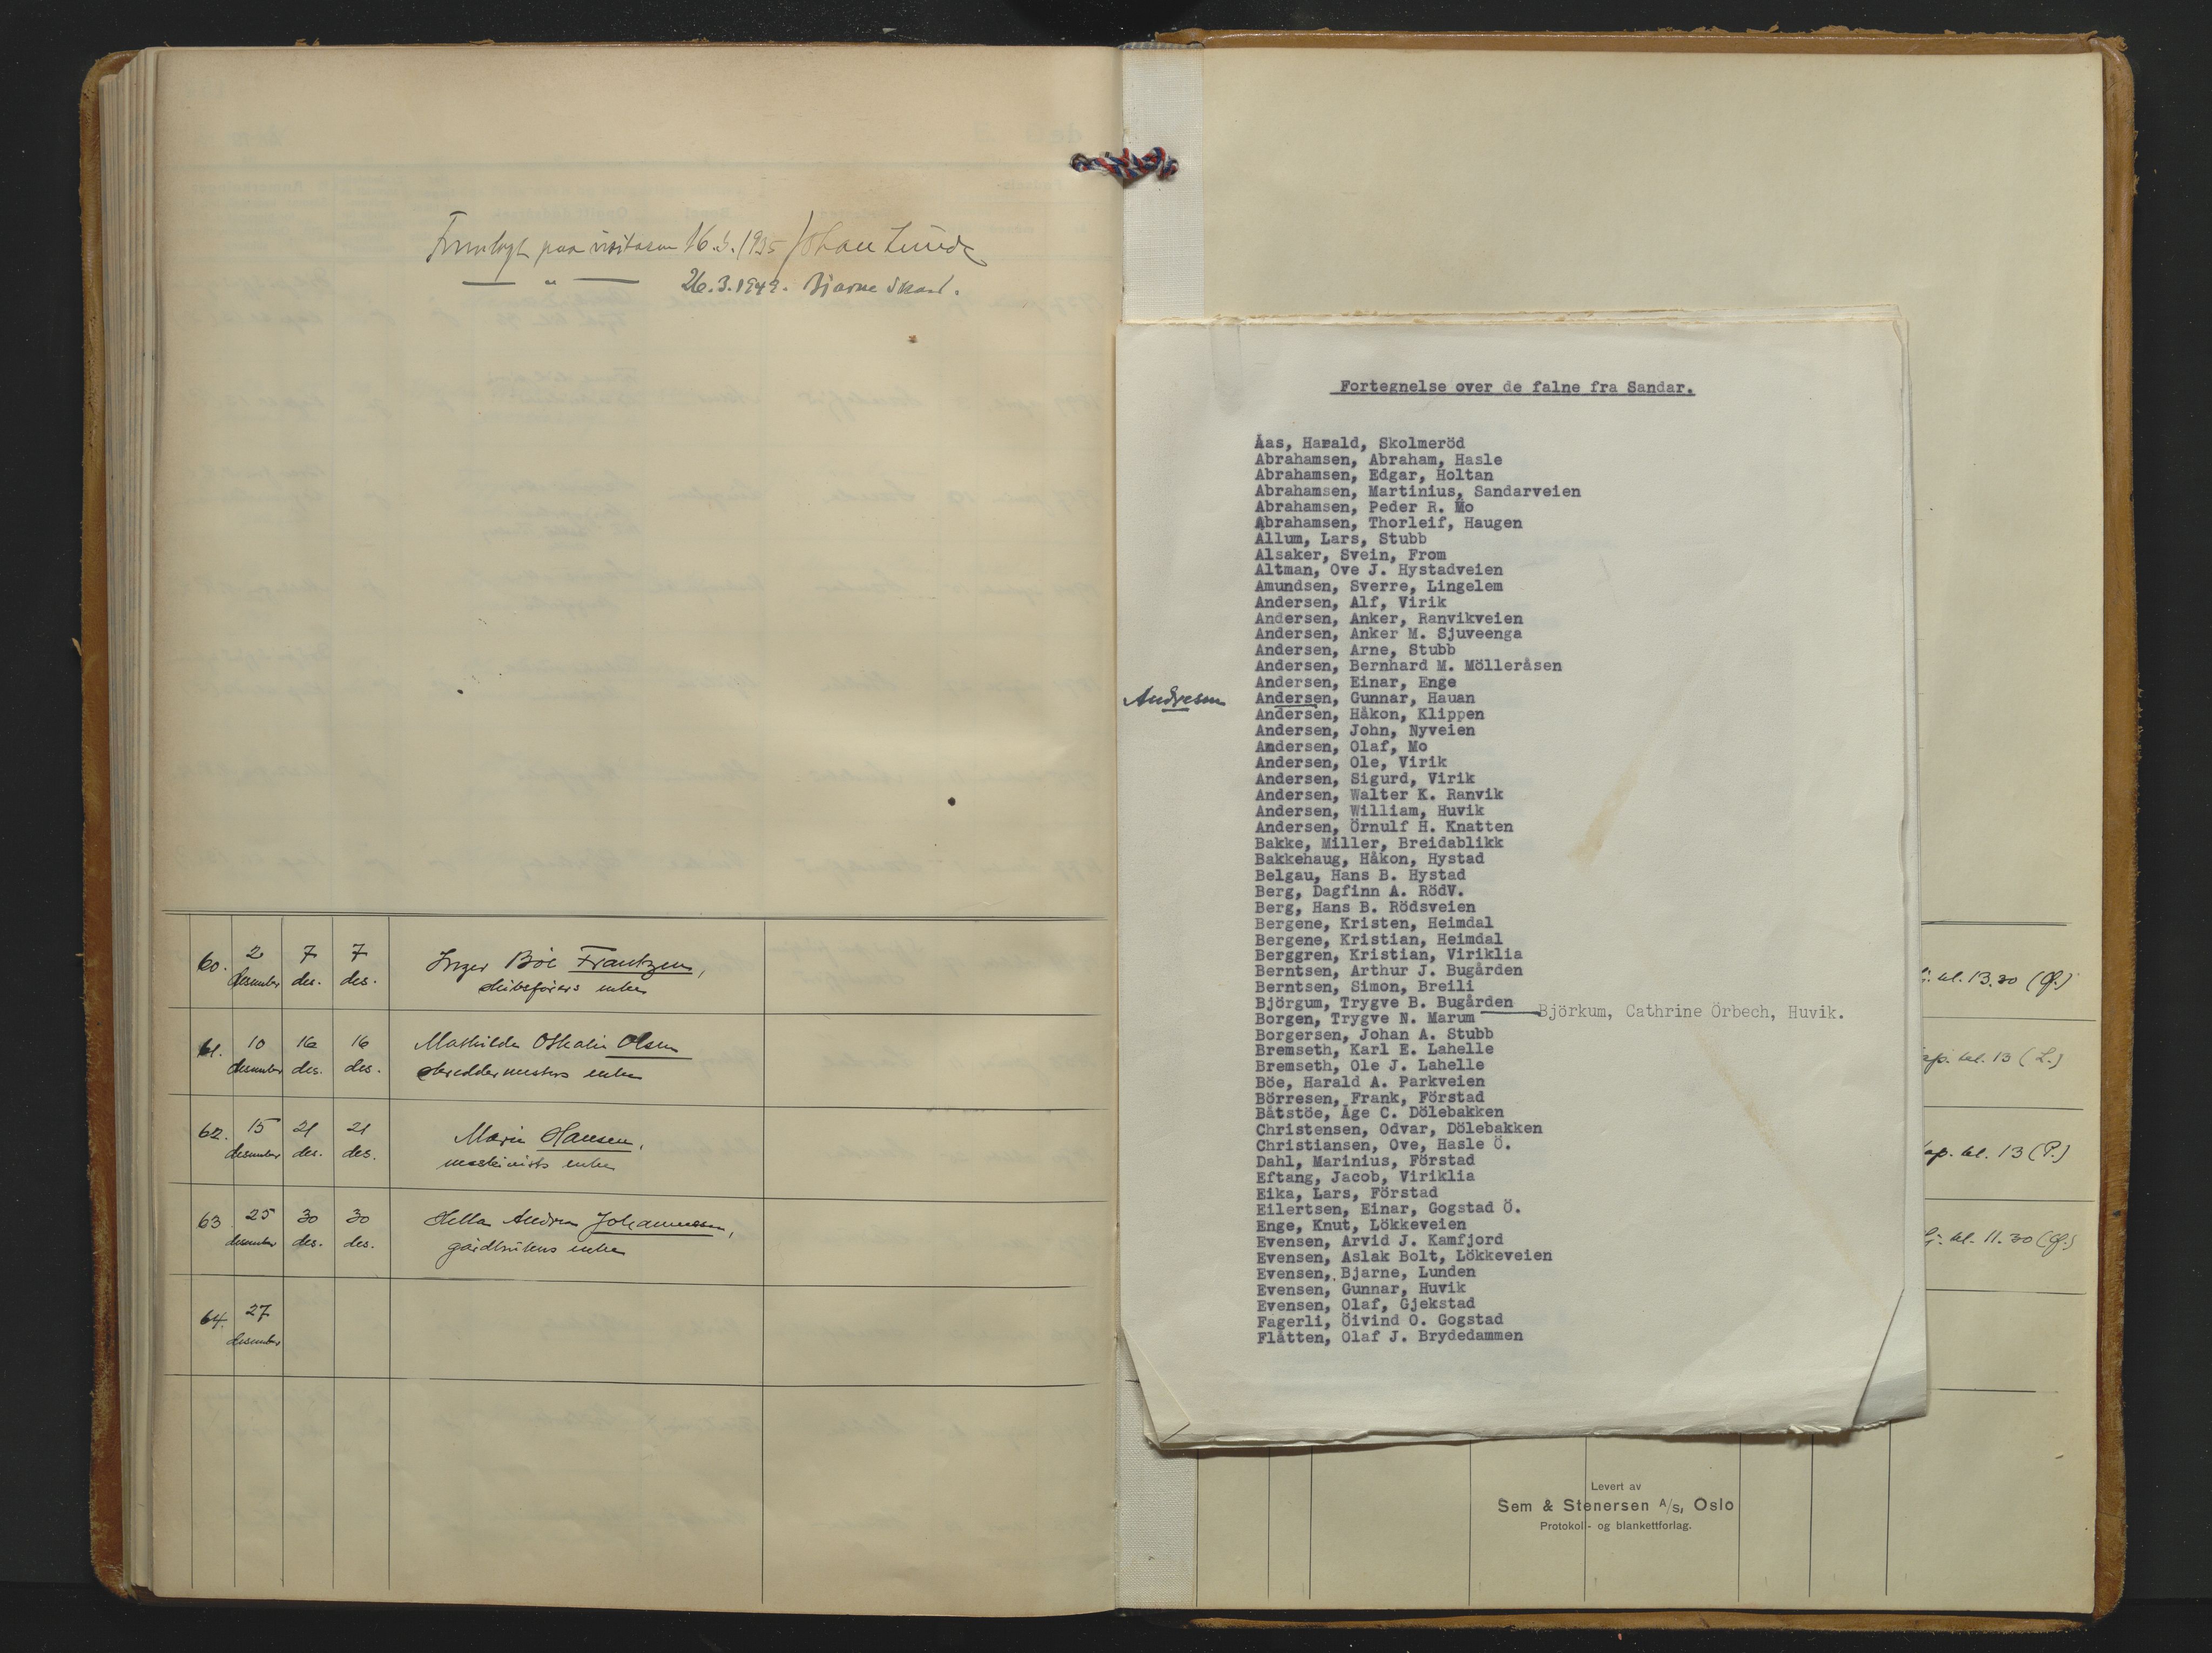 Fremlagt paa visitasen 16.3.1935 Johan Lunde
— " — 26.3.1949. Bjarne Skard.
60. 2 desember 7 des. 7 des. Inger Böe Frantzen,
skibsförers enke
61. 10 desember 16 des. 16 des. Mathilde Othalie Olsen
skreddermesters enke
62. 15 desember 21 des. 21 des. Marie Hansen,
maskinists enke
63 25 desember 30 des. 30 des. Hella Andrea Johannessen,
gårdbrukers enke
64. 27 desember
Fortegnelse over de falne fra Sandar.
Åas, Harald, Skolmeröd
Abrahamsen, Abraham, Hasle
Abrahamsen, Edgar, Holtan
Abrahamsen, Martinius, Sandarveien
Abrahamsen, Peder R. Mo
Abrahamsen, Thorleif, Haugen
Allum, Lars, Stubb
Alsaker, Svein, From
Altman, Ove J. Hystadveien
Amundsen, Sverre, Lingelem
Andersen, Alf, Virik
Andersen, Anker, Ranvikveien
Andersen, Anker M. Sjuveenga
Andersen, Arne, Stubb
Andersen, Bernhard M. Mölleråsen
Andersen, Einar, Enge
Andresen Andersen, Gunnar, Hauan
Andersen, Håkon, Klippen
Andersen, John, Nyveien
Andersen, Olaf, Mo
Andersen, Ole, Virik
Andersen, Sigurd, Virik
Andersen, Walter K. Ranvik
Andersen, William, Huvik
Andersen, Örnulf H. Knatten
Bakke, Miller, Breidablikk
Bakkehaug, Håkon, Hystad
Belgau, Hans B. Hystad
Berg, Dagfinn A. RödV.
Berg, Hans B. Rödsveien
Bergene, Kristen, Heimdal
Bergene, Kristian, Heimdal
Berggren, Kristian, Viriklia
Berntsen, Arthur J. Bugården
Berntsen, Simon, Breili
Björgum, Trygve B. Bugården
Björkum, Cathrine Örbech, Huvik.
Borgen, Trygve N. Marum
Borgersen, Johan A. Stubb
Bremseth, Karl E. Lahelle
Bremseth, Ole J. Lahelle
Böe, Harald A. Parkveien
Börresen, Frank, Förstad
Båtstöe, Åge C. Dölebakken
Christensen, Odvar, Dölebakken
Christiansen, Ove, Hasle Ö.
Dahl, Marinius, Förstad
Eftang, Jacob, Viriklia
Eika, Lars, Förstad
Eilertsen, Einar, Gogstad Ö.
Enge, Knut, Lökkeveien
Evensen, Arvid J. Kamfjord
Evensen, Aslak Bolt, Lökkeveien
Evensen, Bjarne, Lunden
Evensen, Gunnar, Huvik
Evensen, Olaf, Gjekstad
Fagerli, Öivind O. Gogstad
Flåtten, Olaf J. Brydedammen
kl. 13.30 (G.)
ap. kl. 13 (L.)
ap. kl. 13 (P.)
kl. 11.30 (G.)
Levert av
Sem & Stenersen A/s, Oslo
Protokoll- og blankettforlag.